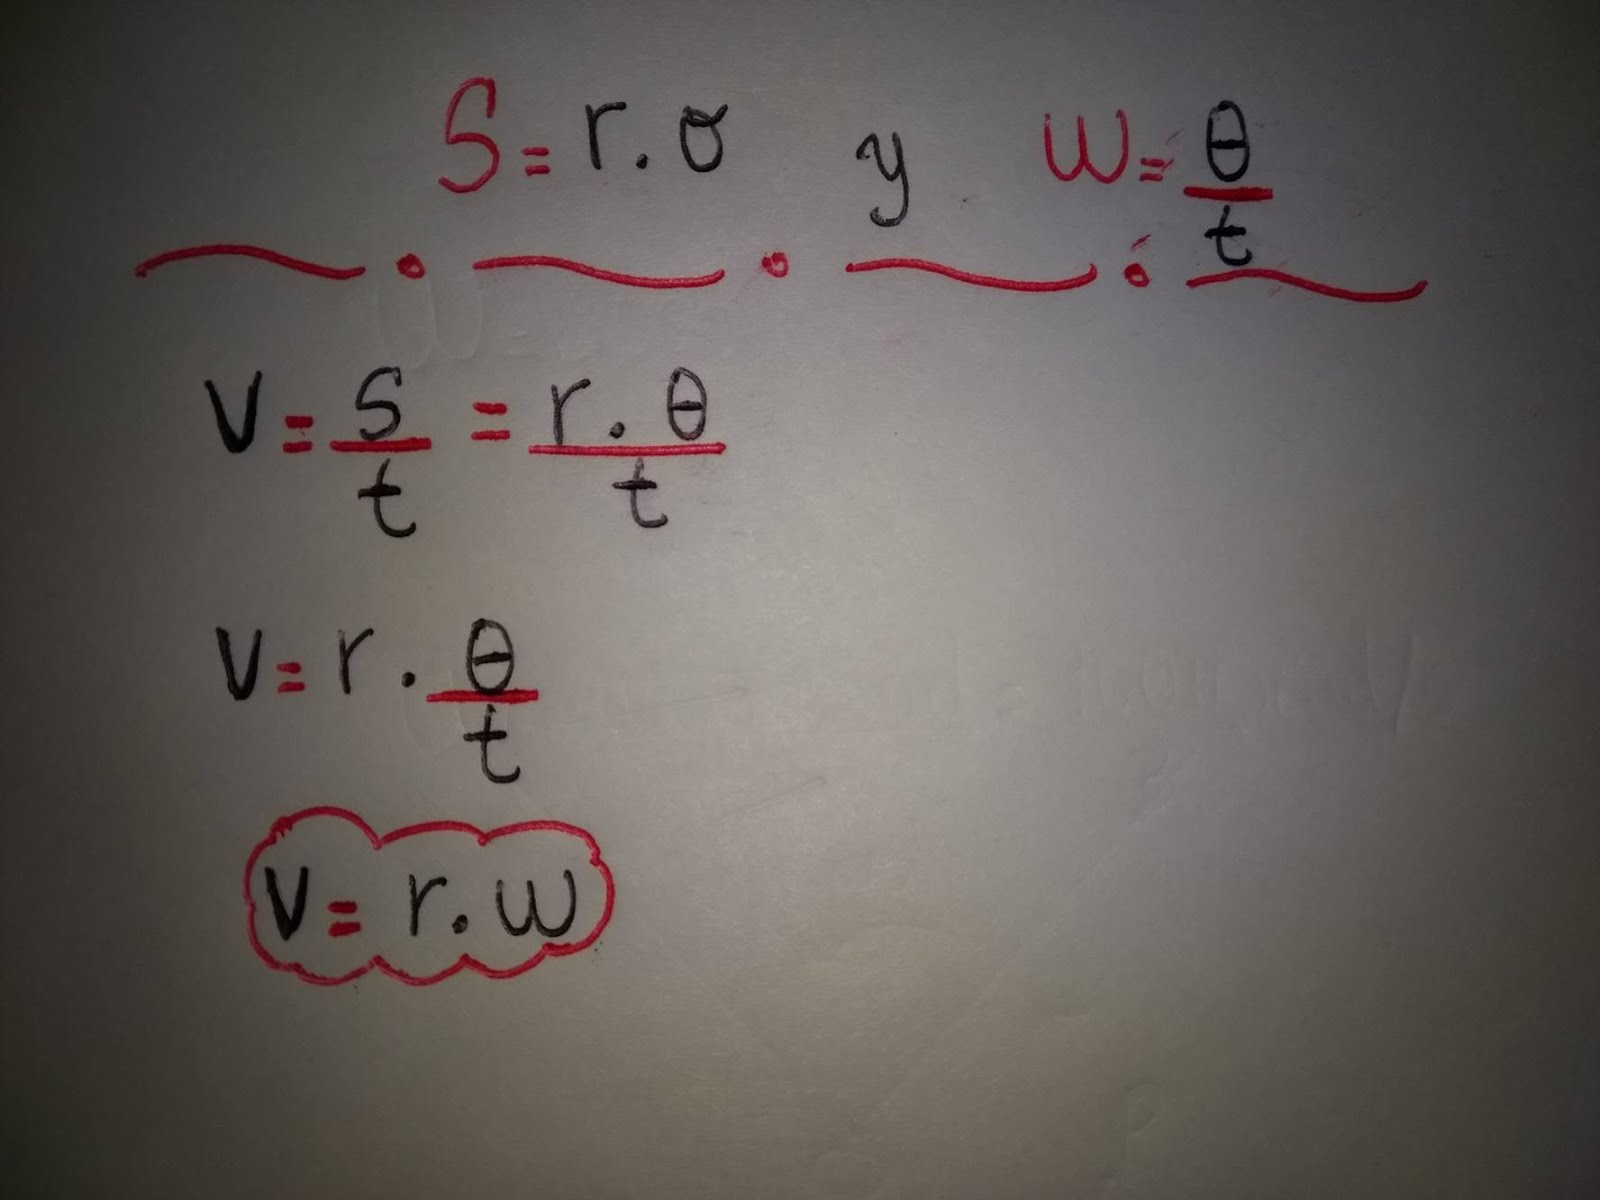 S = r . σ y w = θ/t
v = S/t = r . θ/t
v = r . θ/t
v = r . w